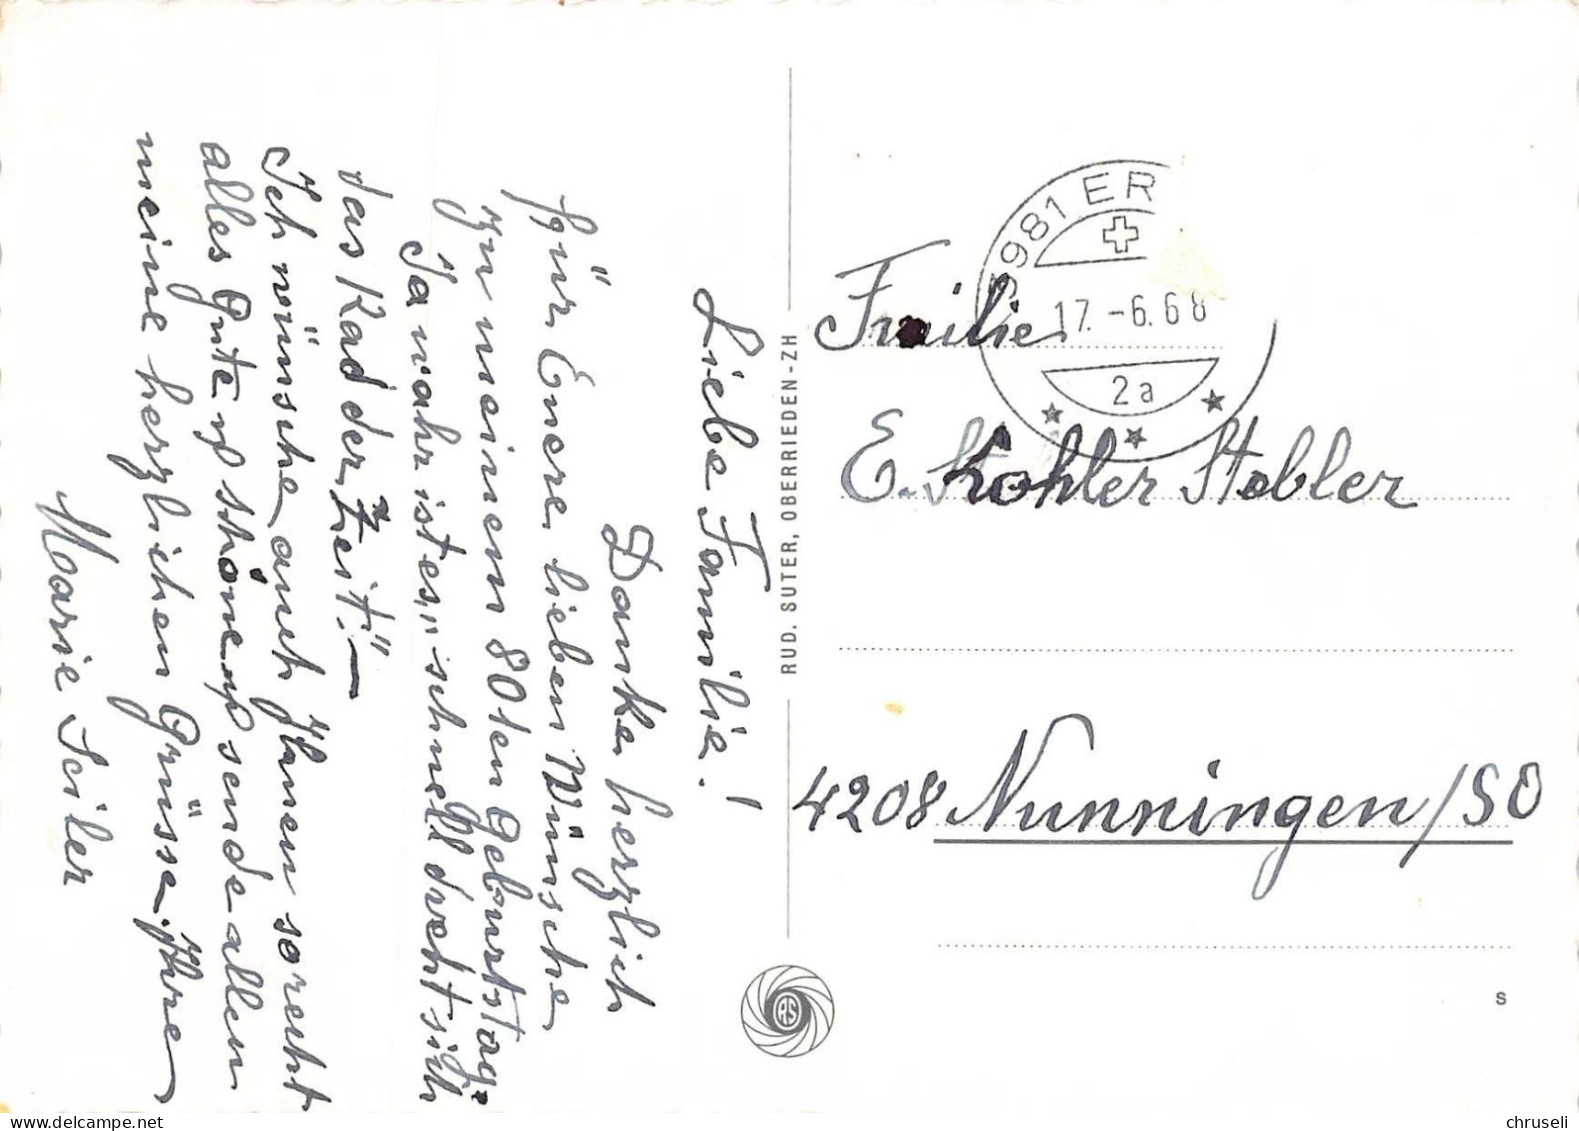 Liebe Familie!
Danke herzlich
für Euere lieben Wünsche
zu meinem 80ten Geburtstag.
Ja wahr ist es, "schnell dreht sich
das Rad der Zeit"! –
Ich wünsche auch Ihnen so recht
alles Gute u. schöne u. sende allen
meine herzlichen Grüsse. Ihre
Marie Seiler
RUD. SUTER, OBERRIEDEN-ZH
RS
3981 ER
17.-6.68
2a
Familie
E. Kohler Stebler
4208 Nunningen/SO
S
chruseli